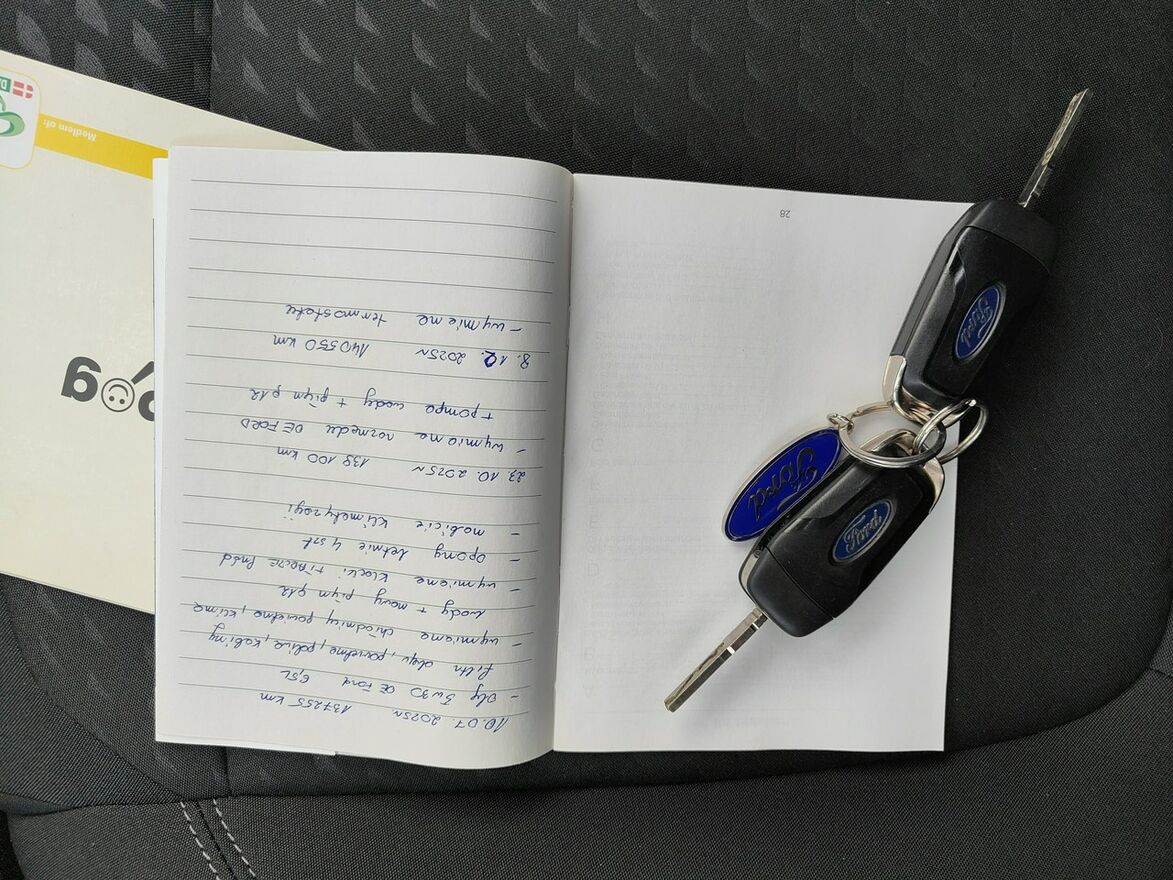 10.07.2025r 137255 km
- olej 5w30 OE Ford 6,5L
filtr oleju, powietrza, paliwa, kabiny
- wymiana chłodnicy powietrza, klima
wody + nowy płyn g12
- wymiana klocki + tarcze Przód
- opony letnie 4 szt
- nabicie klimatyzacji
23.10.2025r 139 100 km
- wymiana rozrządu OE FORD
+ pompa wody + płyn g12
8.12.2025r 140 550 km
- wymiana termostatu
28
Ford
Ford
Ford
Medlem of: